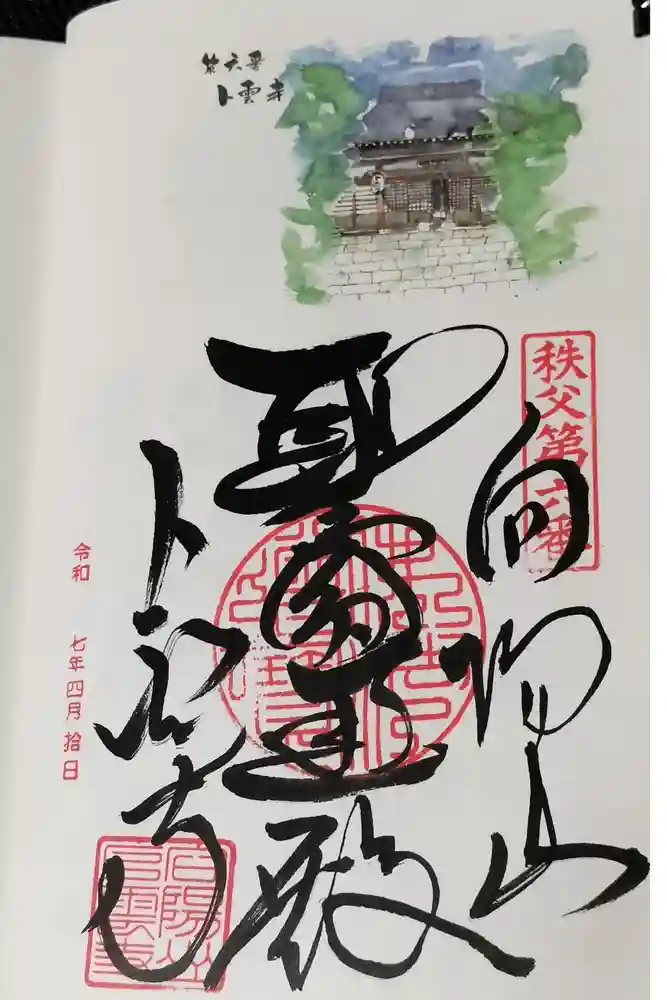 第六番
卜雲寺
秩父第六番
向陽山
聖
殿
卜雲寺
令和 七年四月拾日
向陽山
卜雲寺